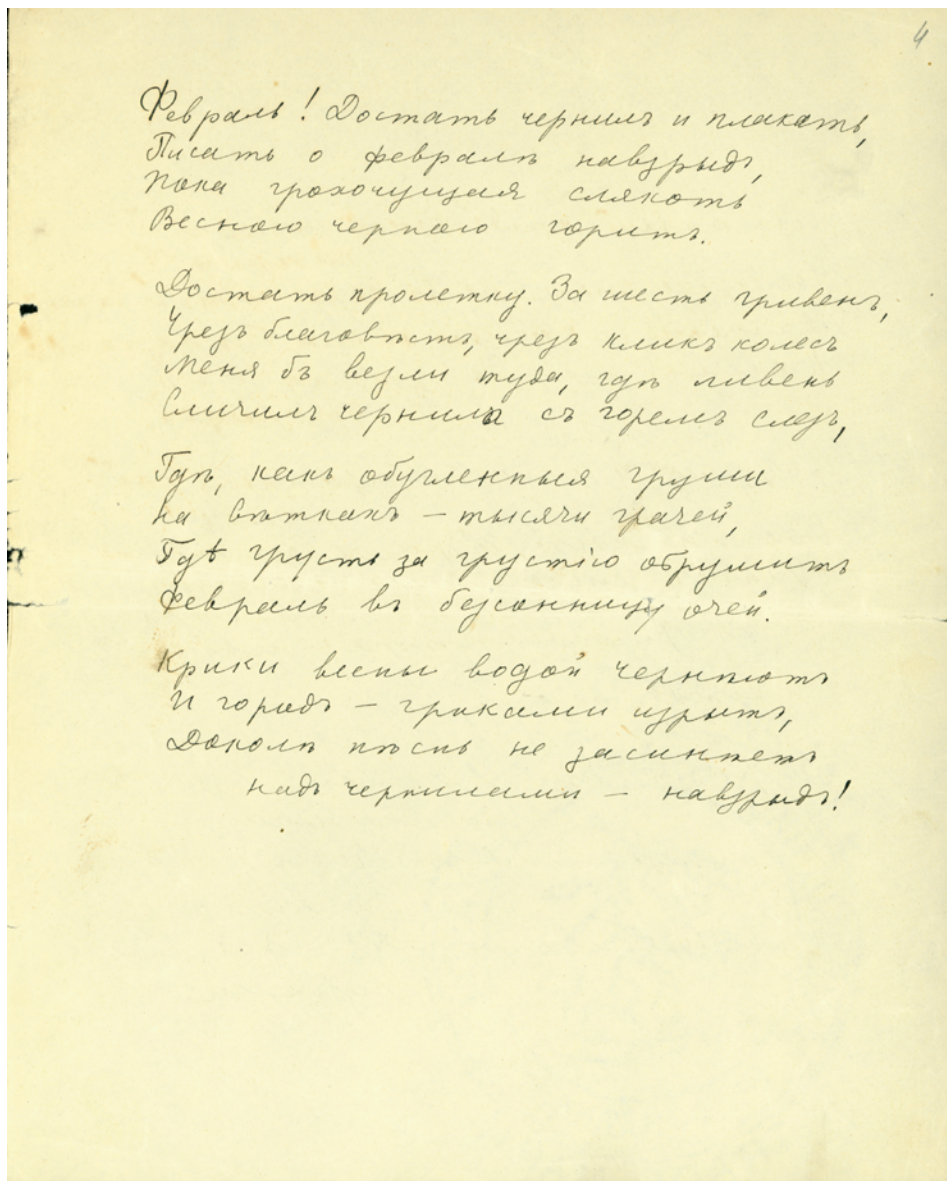 4
Февраль! Достать чернилъ и плакать,
Писать о февралѣ навзрыдъ,
Пока грохочущая слякоть
Весною черною горитъ.
Достать пролетку. За шесть гривенъ,
Чрезъ благовѣстъ, чрезъ кликъ колесъ
Меня бъ везли туда, гдѣ ливень
Сличилъ чернила съ горемъ слезъ,
Гдѣ, какъ обугленныя груши
На вѣткахъ – тысячи грачей,
Гдѣ грусть за грустію обрушитъ
Февраль въ безсонницу очей.
Крики весны водой чернѣютъ
И городъ – криками изрытъ,
Доколѣ пѣснь не засинѣетъ
Надъ чернилами – навзрыдъ!